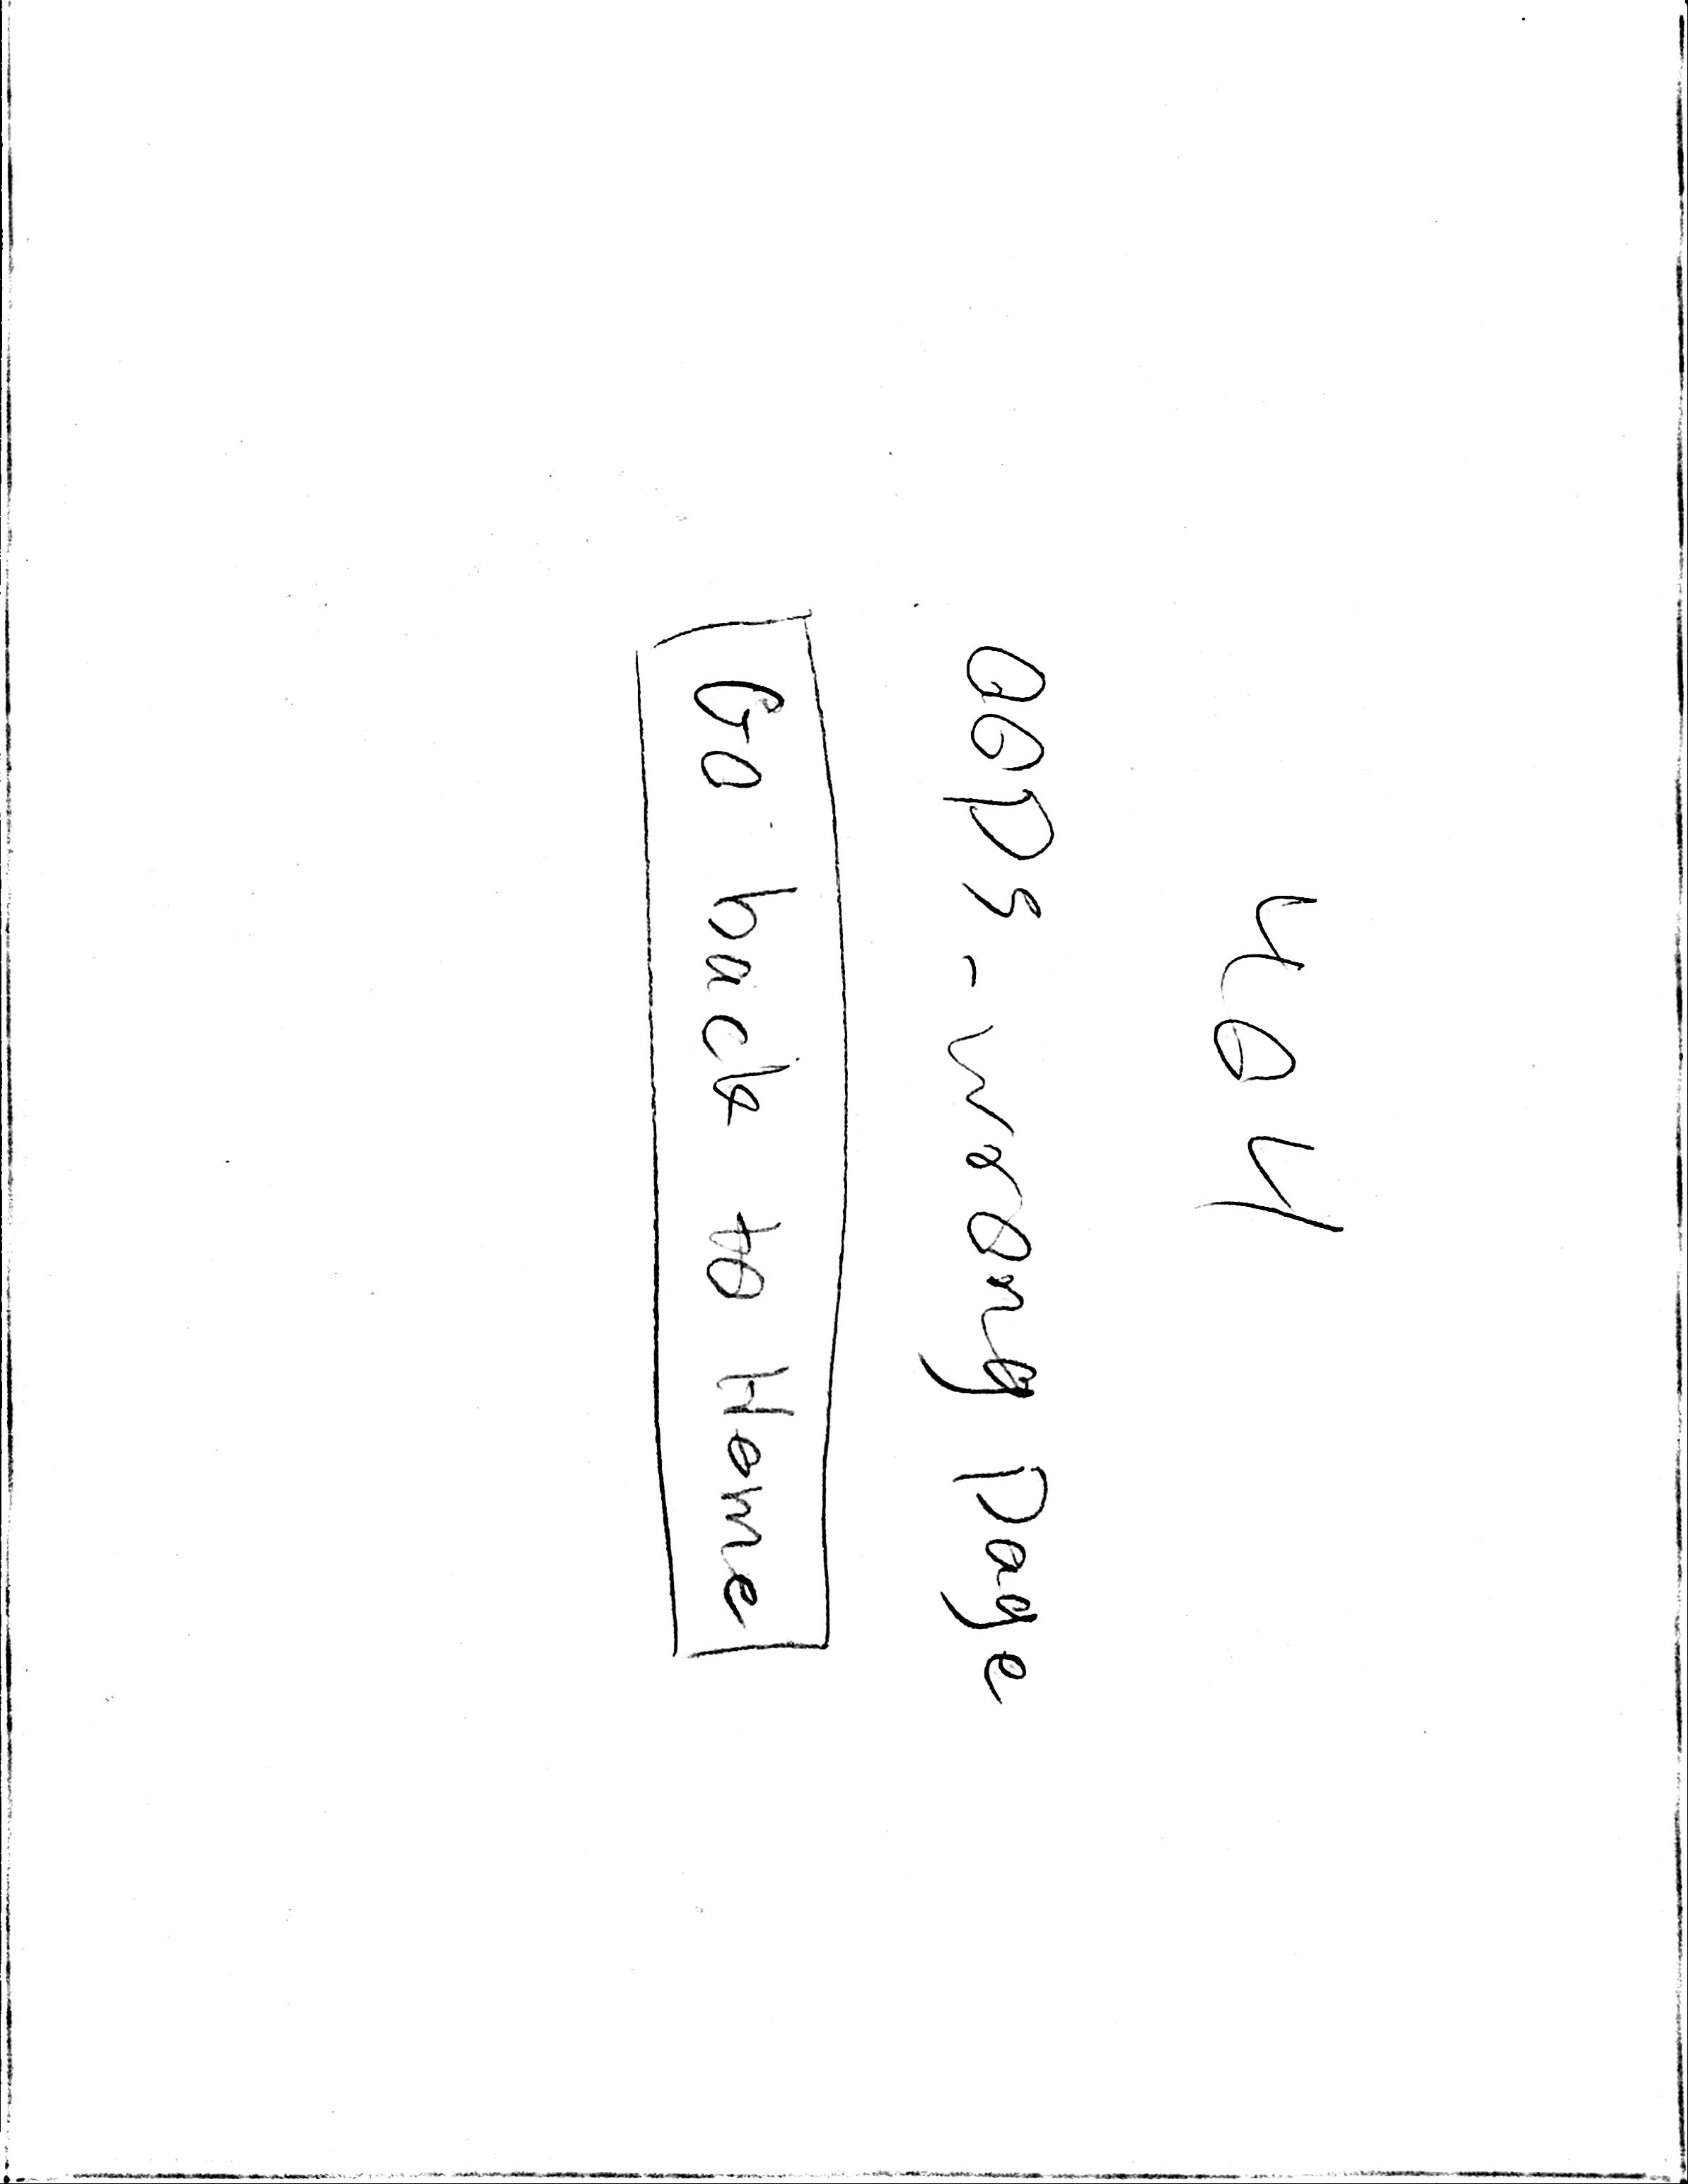 404
oops - wrong page
Go back to Home